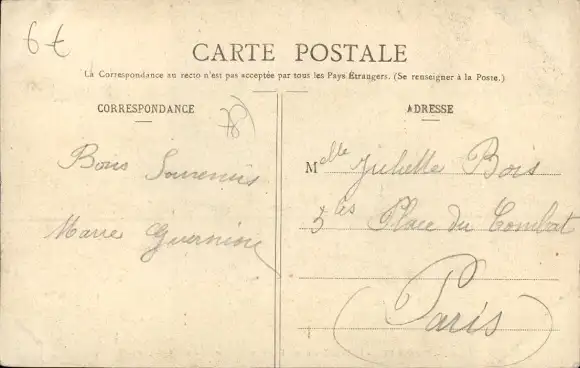 6€
CARTE POSTALE
La Correspondance au recto n'est pas acceptée par tous les Pays Étrangers. (Se renseigner à la Poste.)
CORRESPONDANCE
(78)
Bons Souvenirs
Marie Guernion
ADRESSE
Melle Juliette Bois
3 bis Place du Combat
(Paris)